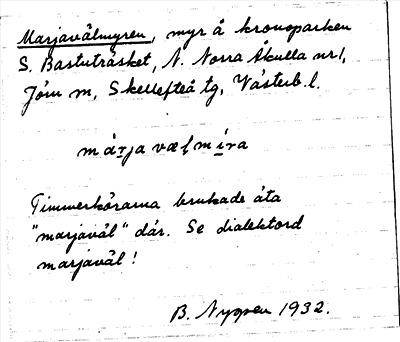 Marjavålmyren, myr å kronoparken
S. Bastuträsket, N. Norra Åkulla nr 1,
Jörn sn, Skellefteå tg, Västerb. l.
Timmerkörarna brukade äta
"marjavål" där. Se dialektord
marjavål!
B. Nygren 1932.